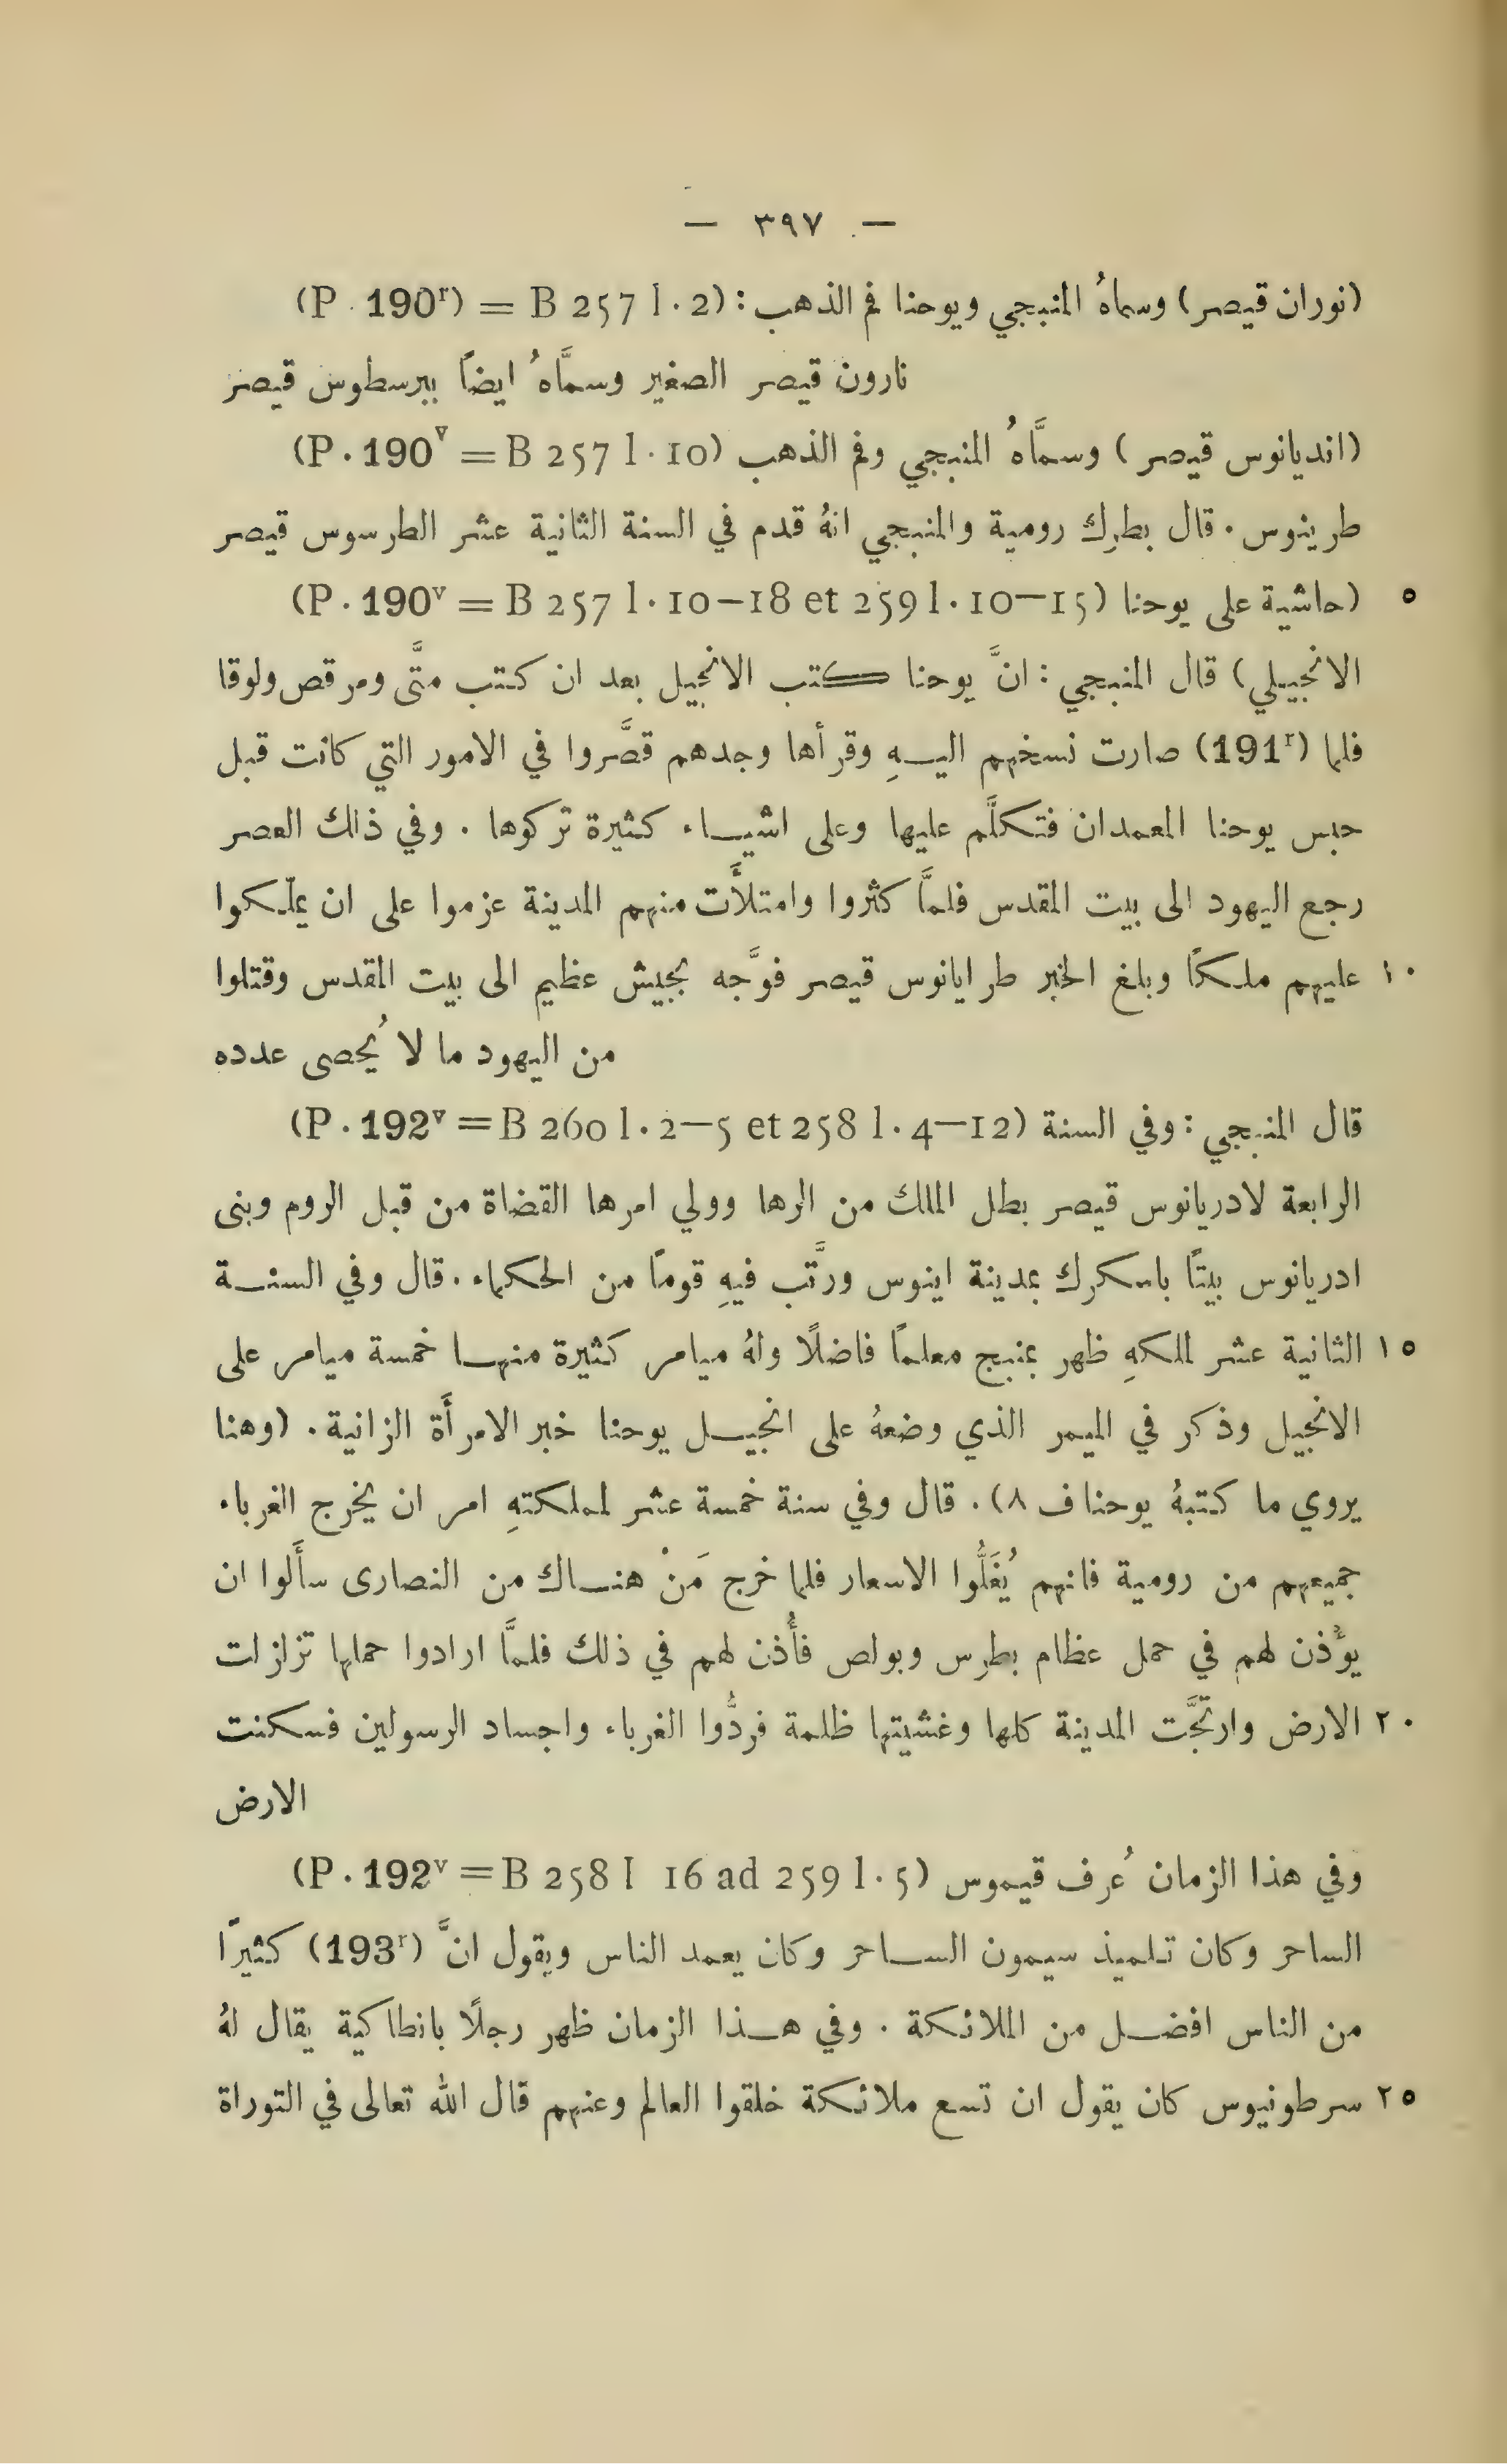 — ٣٩٧ —
(نوران قيصر) وسماهُ المنبجي ويوحنا فم الذهب : (P. 190ʳ) = B 257 l. 2)
نارون قيصر الصغير وسمَّاهُ ايضاً ببرسطوس قيصر
(انديانوس قيصر) وسمَّاهُ المنبجي وفم الذهب (P. 190ᵛ = B 257 l. 10)
طرينوس . قال بطرك رومية والمنبجي انهُ قدم في السنة الثانية عشر الطرسوس قيصر
٥ (حاشية على يوحنا (P. 190ᵛ = B 257 l. 10–18 et 259 l. 10–15)
الانجيلي) قال المنبجي : انَّ يوحنا كتب الانجيل بعد ان كتب متَّى ومرقص ولوقا
فلما (191ʳ) صارت نسخهم اليهِ وقرأها وجدهم قصَّروا في الامور التي كانت قبل
حبس يوحنا المعمدان فتكلَّم عليها وعلى اشياء كثيرة تركوها . وفي ذلك العصر
رجع اليهود الى بيت المقدس فلمَّا كثروا وامتلأَت منهم المدينة عزموا على ان يملّكوا
١٠ عليهم ملكاً وبلغ الخبر طرايانوس قيصر فوَّجه بجيش عظيم الى بيت المقدس وقتلوا
من اليهود ما لا يُحصى عدده
قال المنبجي : وفي السنة (P. 192ᵛ = B 260 l. 2–5 et 258 l. 4–12)
الرابعة لادريانوس قيصر بطل الملك من الرها وولي امرها القضاة من قبل الروم وبنى
ادريانوس بيتاً باسكرك بمدينة اينوس ورتَّب فيهِ قوماً من الحكماء . قال وفي السنة
١٥ الثانية عشر لملكهِ ظهر بمنبج معلماً فاضلًا ولهُ ميامر كثيرة منها خمسة ميامر على
الانجيل وذكر في الميمر الذي وضعهُ على انجيل يوحنا خبر الامرأَة الزانية . (وهنا
يروي ما كتبهُ يوحنا ف ٨) . قال وفي سنة خمسة عشر لمملكتهِ امر ان يخرج الغرباء
جميعهم من رومية فانهم يُغَلُّوا الاسعار فلما خرج مَنْ هناك من النصارى سأَلوا ان
يؤَذن لهم في حمل عظام بطرس وبولص فأُذن لهم في ذلك فلمَّا ارادوا حملها تزلزلت
٢٠ الارض وارتجَّت المدينة كلها وغشيتها ظلمة فردُّوا الغرباء واجساد الرسولين فسكنت
الارض
وفي هذا الزمان عُرف قيموس (P. 192ᵛ = B 258 l 16 ad 259 l. 5)
الساحر وكان تلميذ سيمون الساحر وكان يعمد الناس ويقول انَّ (193ʳ) كثيرًا
من الناس افضل من الملائكة . وفي هذا الزمان ظهر رجلًا بانطاكية يقال لهُ
٢٥ سرطونيوس كان يقول ان تسع ملائكة خلقوا العالم وعنهم قال الله تعالى في التوراة